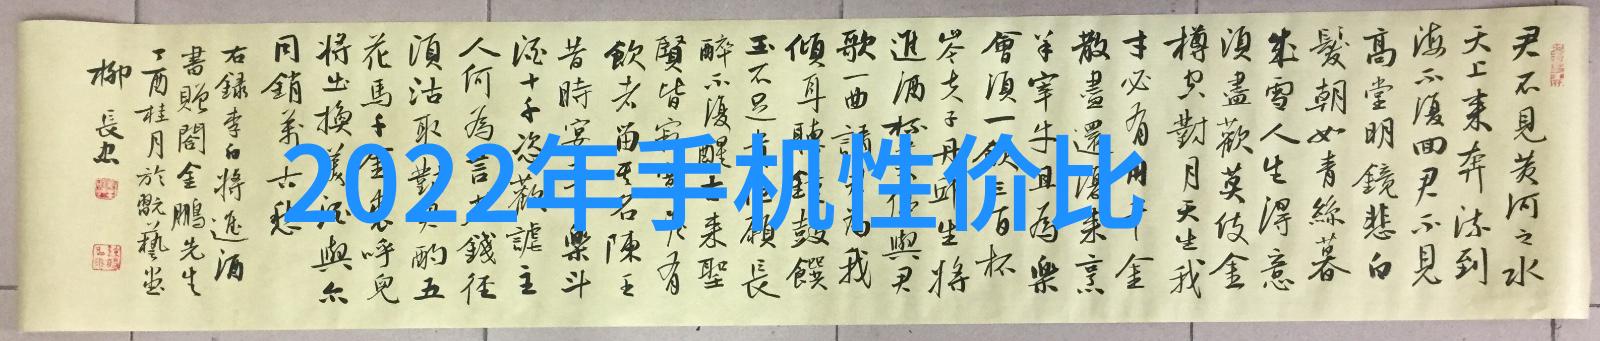 君不見黃河之水
天上来奔流到
海不復回君不見
高堂明鏡悲白
髮朝如青絲暮
成雪人生得意
須盡歡莫使金
樽空對月天生我
才必有用千金
散盡還復来烹
羊宰牛且為樂
會須一飲三百杯
岑夫子丹邱生將
進酒杯莫停與君
歌一曲請君為我
傾耳聽鐘鼓饌
玉不足貴但願長
醉不復醒古来聖
賢皆寂寞惟有
飲者留其名陳王
昔時宴平樂斗
酒十千恣歡謔主
人何為言少錢徑
須沽取對君酌五
花馬千金裘呼兒
將出換美酒與尔
同銷萬古愁
右録李白將進酒
書贈閣金鵬先生
丁酉桂月於翫藝堂
柳長忠
2022年手机性价比